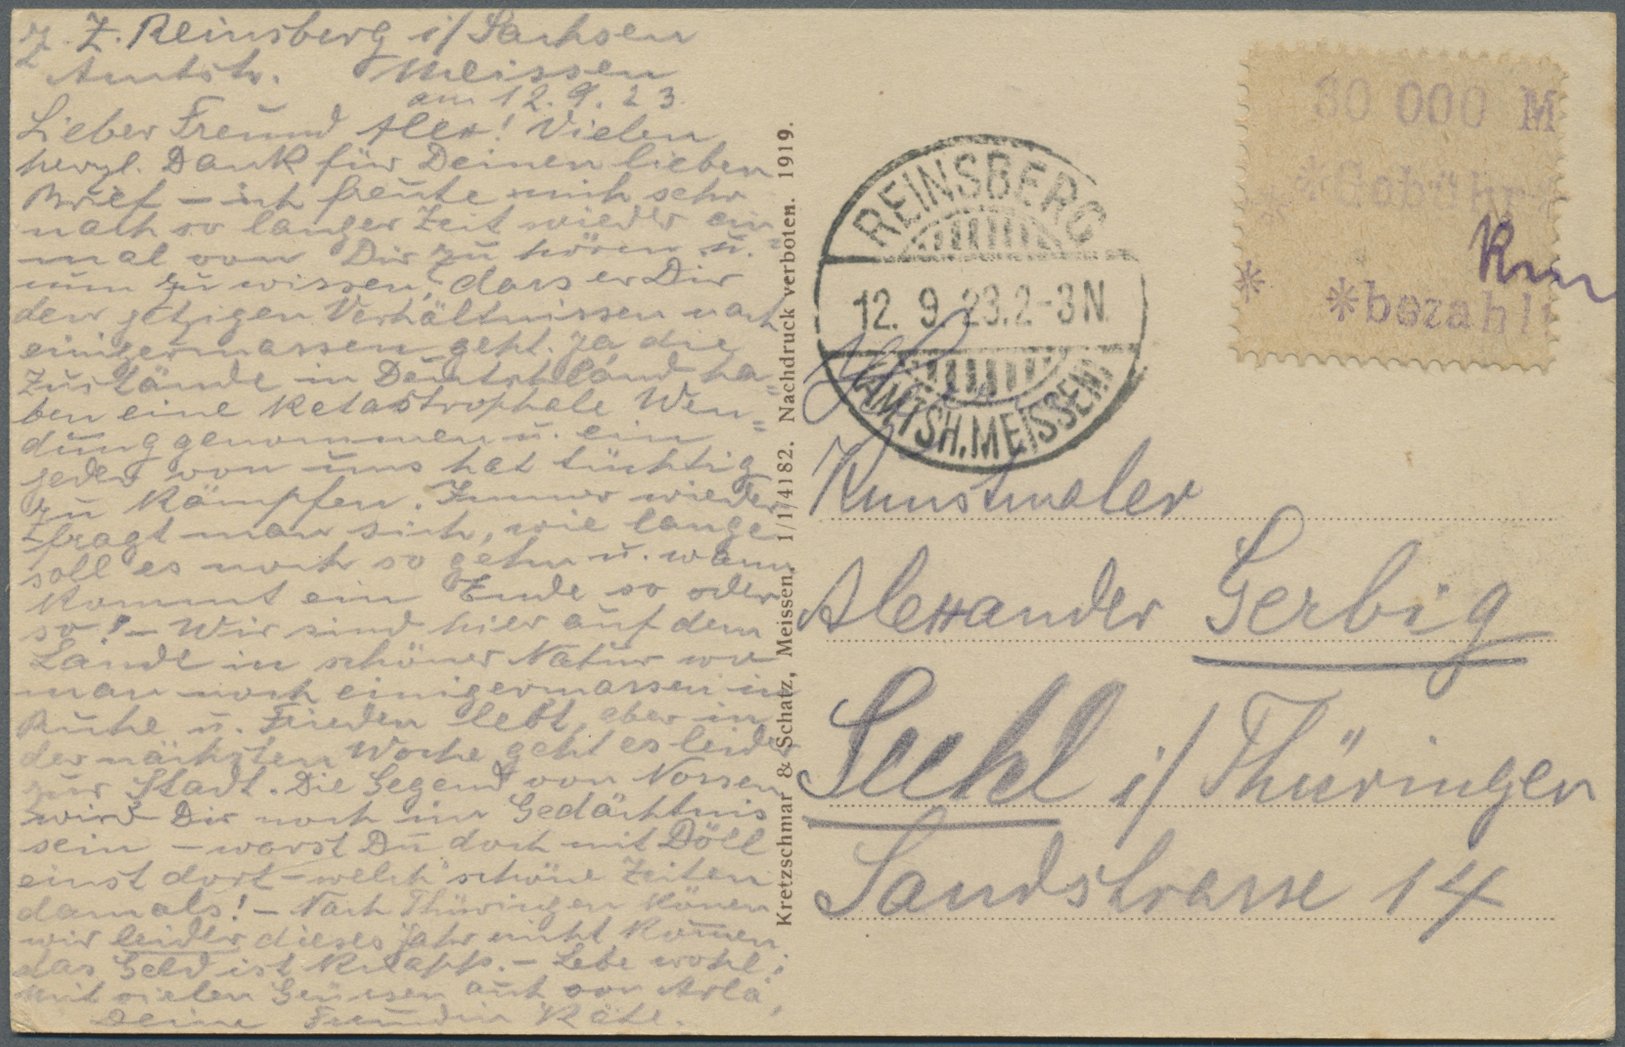 z. Z. Reinsberg i/ Sachsen
Amtsh. Meissen
am 12. 9. 23.
Lieber Freund Alex! Vielen
herzl. Dank für Deinen lieben
Brief – ich freute mich sehr
nach so langer Zeit wieder ein=
mal von Dir zu hören u.
um zu wissen, dass er Dir
den jetzigen Verhältnissen nach
einigermassen geht. Ja die
Zustände in Deutschland ha=
ben eine Katastrophale Wen=
dung genommen u. ein
jeder von uns hat tüchtig
zu kämpfen. Immer wieder
fragt man sich, wie lange
soll es noch so gehn u. wann
kommt ein Ende so oder
so! – Wir sind hier auf dem
Lande in schöner Natur wo
man noch einigermassen in
Ruhe u. Frieden lebt, aber in
der nächsten Woche geht es leider
zur Stadt. Die Gegend von Nossen
wird Dir noch im Gedächtnis
sein – warst Du doch mit Döll
einst dort – welch' schöne Zeiten
damals! – Nach Thüringen können
wir leider dieses Jahr nicht kommen
das Geld ist knapp. – Lebe wohl;
mit vielen Grüssen auch von Arla,
Deine Freundin Käte.
Kretzschmar & Schatz, Meissen. 1/1/4182. Nachdruck verboten. 1919.
REINSBERG
12. 9. 23. 2-3 N.
(AMTSH. MEISSEN)
80 000 M
*Gebühr
* *bezahlt
Kunstmaler
Alexander Gerbig
Suhl i/ Thüringen
Sandstrasse 14